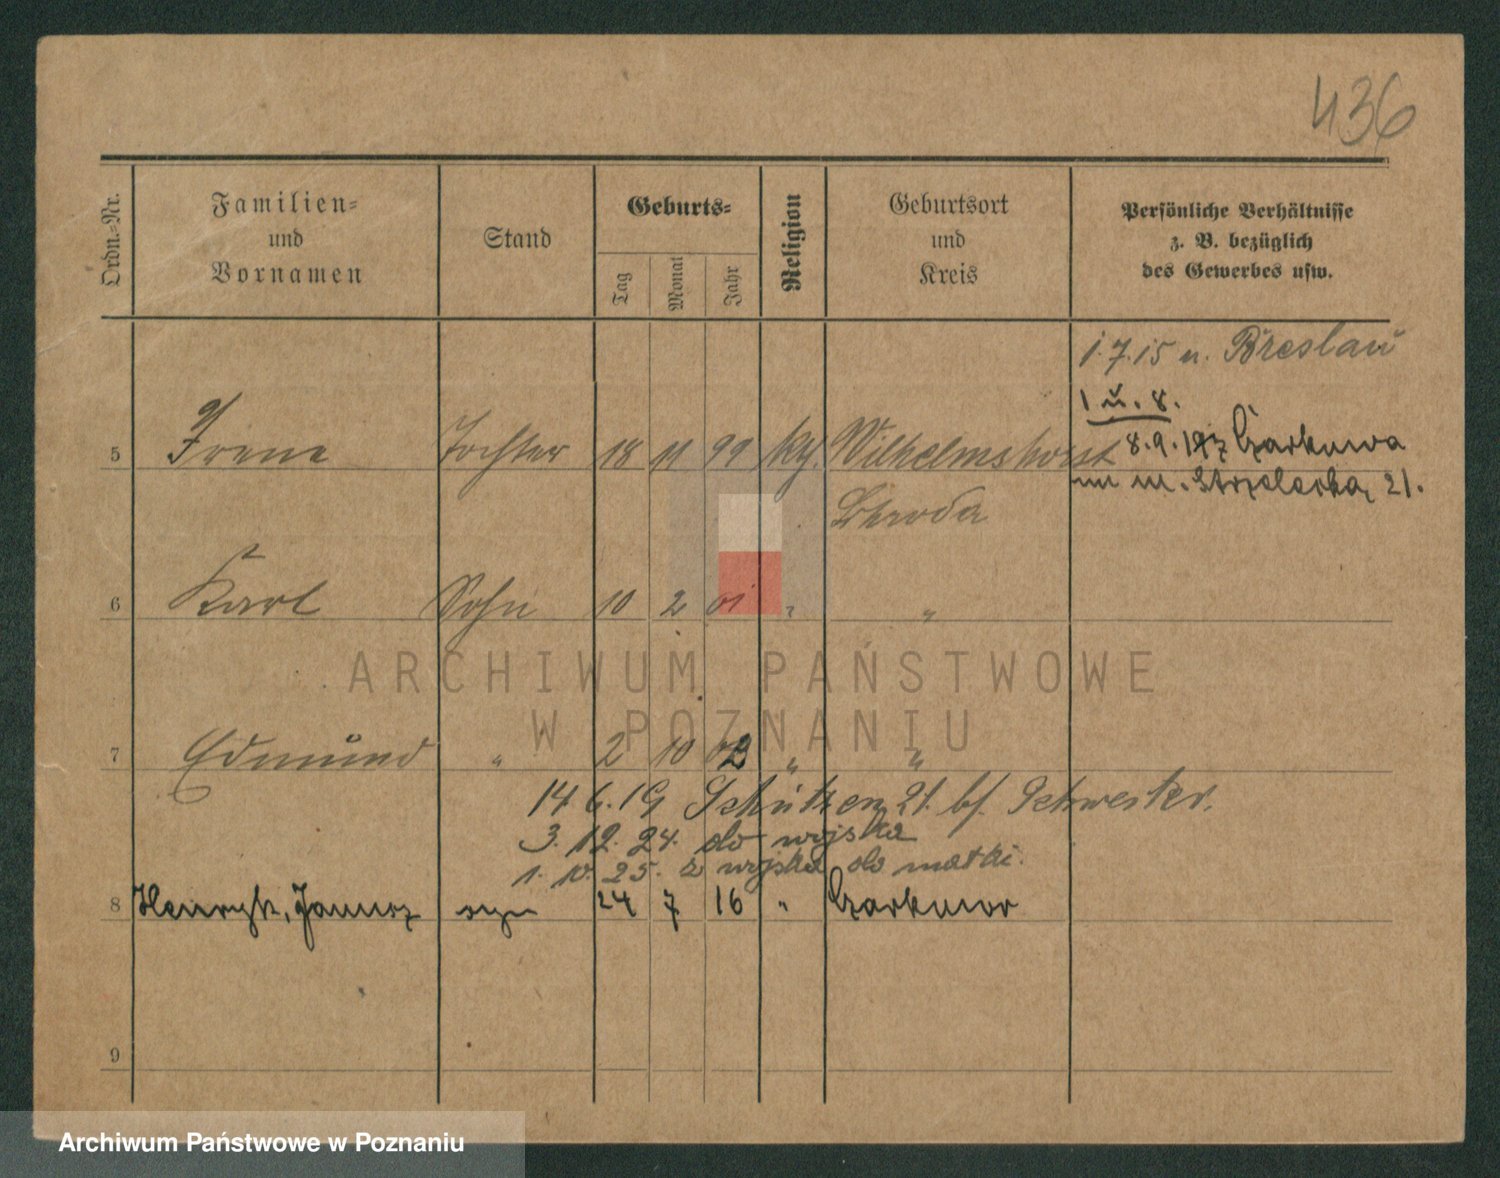 436
Ordn.-Nr.
Familien-
und
Vornamen
Stand
Geburts-
Tag
Monat
Jahr
Religion
Geburtsort
und
Kreis
Persönliche Verhältnisse
z. B. bezüglich
des Gewerbes usw.
1.7.15 n. Breslau
1 u. 8.
8.9.197 Czarkowa
5 Irene Tochter 18 11 99 kth. Wilhelmshorst
m. Strzelecka, 21.
Schroda
6 Karl Sohn 10 2 01 " "
ARCHIWUM PAŃSTWOWE
W POZNANIU
7 Edmund " 2 10 02 " "
14 6. 19 Schützen 21. bf. Schwester.
3. 12. 24. do wojska
1. 10. 25. z wojska do matki.
8 Henryk, Janusz syn 24 7 16 "
9
Archiwum Państwowe w Poznaniu